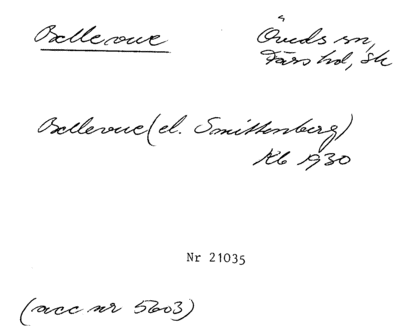 Bellevue
Öveds sn,
Färs hd, Sk
Bellevue (el. Smittenberg)
Kb 1930
Nr 21035
(acc nr 5603)